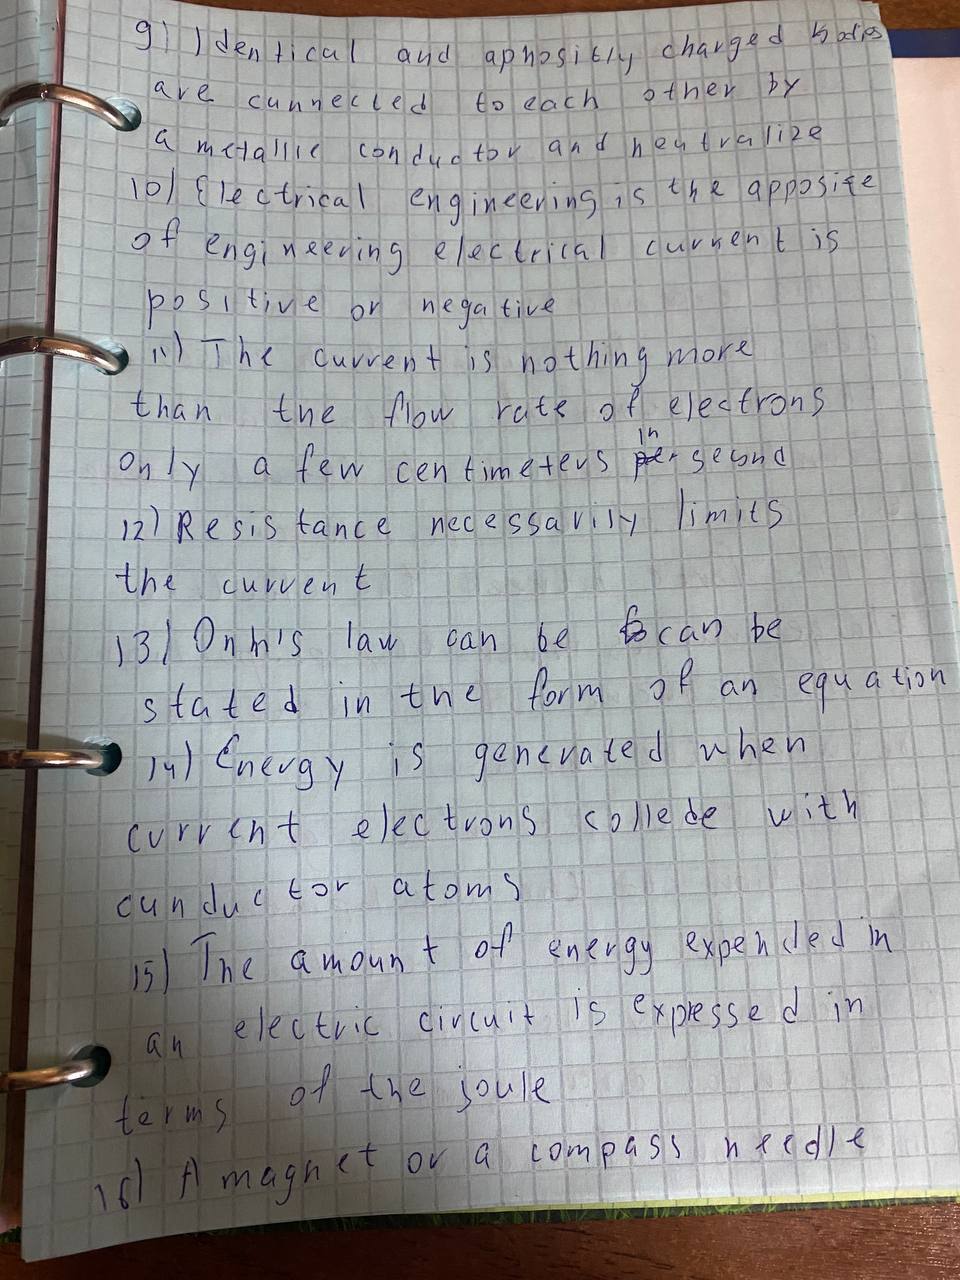 9) Identical and aphositly charged bodies
are cunnected to each other by
a metallic conductor and neutralize
10) Electrical engineering is the apposite
of engineering electrical current is
positive or negative
11) The current is nothing more
than the flow rate of electrons
in
only a few centimeters per second
12) Resistance necessarily limits
the current
13) Onm's law can be can be
stated in the form of an equation
14) Energy is generated when
current electrons collede with
cunductor atoms
15) The amount of energy expended in
an electric circuit is expressed in
terms of the joule
16) A magnet or a compass needle